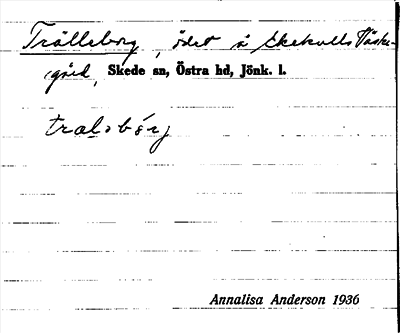 Trälleborg, ödet å Ekekulls Väster-
gård, Skede sn, Östra hd, Jönk. l.
tralsbórj
Annalisa Anderson 1936